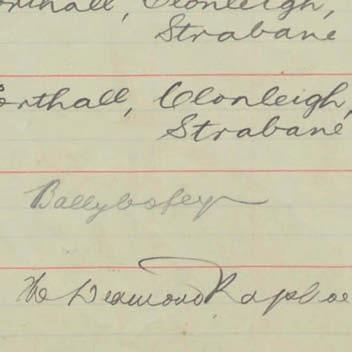 orthall, Clonleigh,
Strabane
orthall, Clonleigh,
Strabane
Ballybofey
The Diamond Raphoe